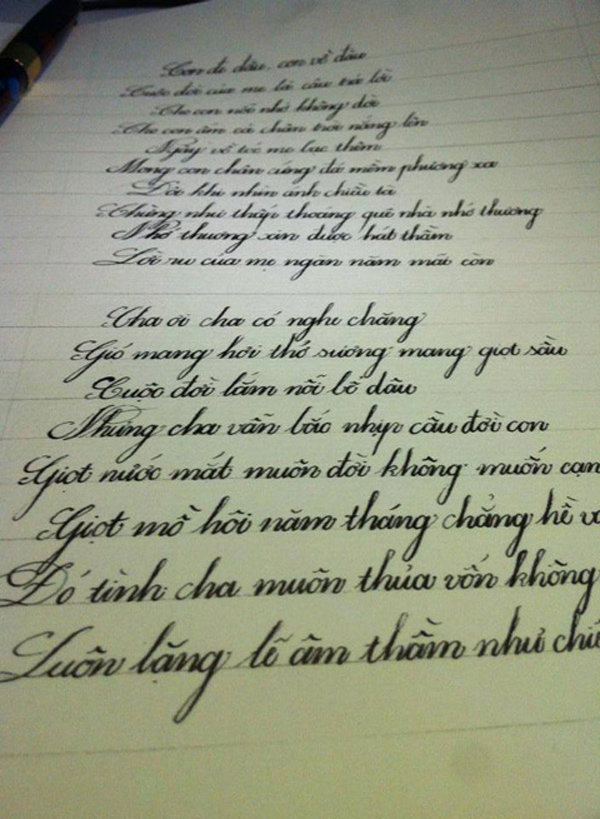 Con đi đâu, con về đâu
Cuộc đời của mẹ là câu trả lời
Cho con nỗi nhớ không đời
Cho con ấm cả chân trời nắng lên
Ngày về tóc mẹ bạc thêm
Mong con chân cứng đá mềm phương xa
Đôi khi nhìn ánh chiều tà
Chừng như thấp thoáng quê nhà nhớ thương
Nhớ thương xin được hát thầm
Lời ru của mẹ ngàn năm mãi còn
Cha ơi cha có nghe chăng
Gió mang hơi thở sương mang giọt sầu
Cuộc đời lắm nỗi bể dâu
Nhưng cha vẫn bắc nhịp cầu đời con
Giọt nước mắt muôn đời không muốn cạn
Giọt mồ hôi năm tháng chẳng hề
Đó tình cha muôn thủa vốn không
Luôn lặng lẽ âm thầm như